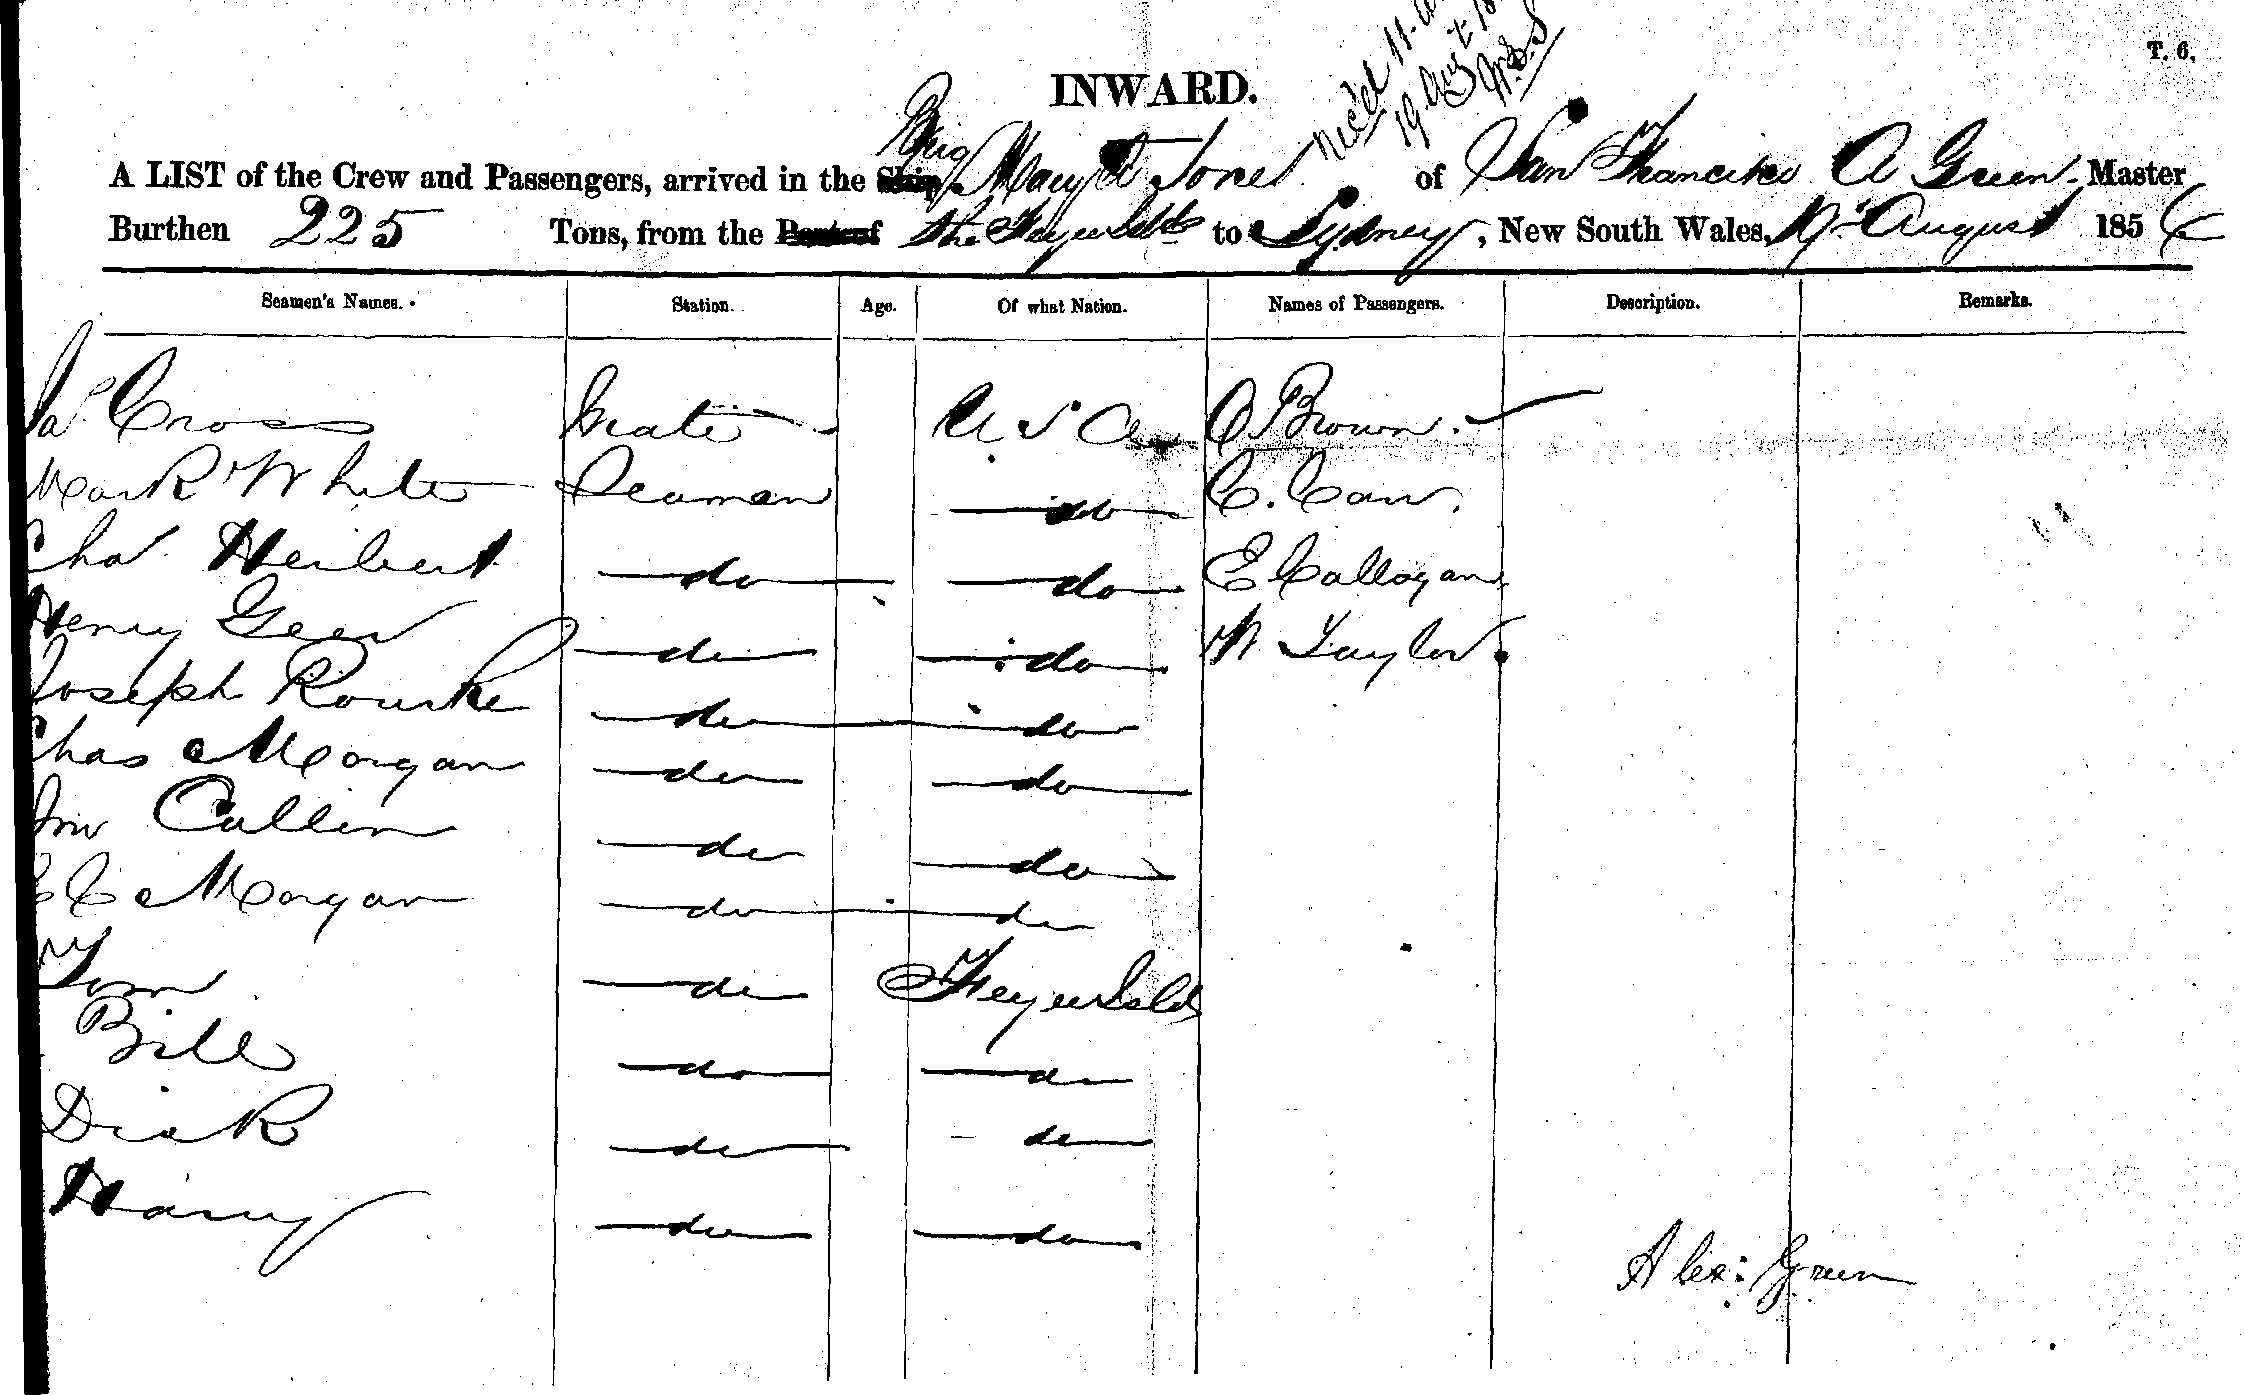 T. 6.
INWARD.
Rec'd 11.
19 Augt
W.S.S
Brig
A LIST of the Crew and Passengers, arrived in the Ship Mary A Jones of San Francisko A Green Master
Burthen 225 Tons, from the Port of the Feejee Islds to Sydney, New South Wales, 19th August 1856
Seamen's Names. Station. Age. Of what Nation. Names of Passengers. Description. Remarks.
Jas Cross Mate U S A C Brown.
Mark White Seaman do C. Carr.
Chas Herbert do do E Callogan
Henry Geer do do W Taylor
Joseph Rourke do do
Chas Morgan do do
Jno Cullen do do
E C Morgan do do
Tom do Feejee Islds
Bill do do
Dick do do
Harry do do
Alex: Green